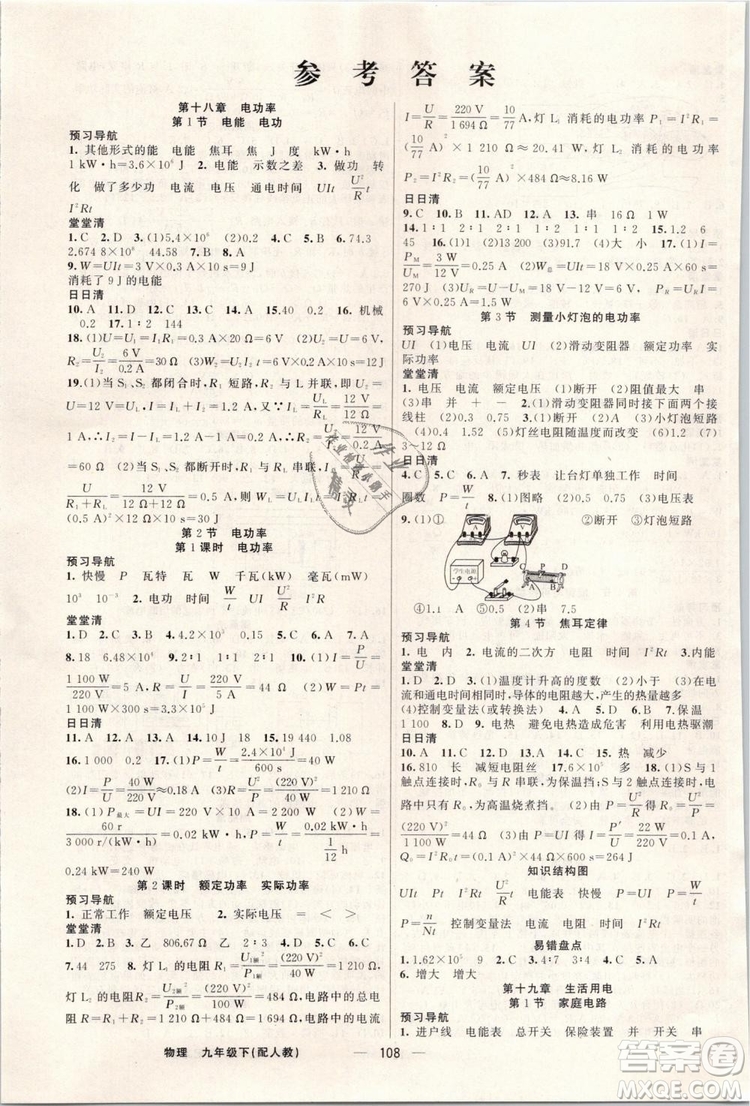 参考答案
第十八章 电功率
第1节 电能 电功
预习导航
1. 其他形式的能 电能 焦耳 焦 J 度 kW·h
1 kW·h=3.6×10⁶ J 2. 电能 示数之差 3. 做功 转
化 做了多少功 电流 电压 通电时间 UIt U²/R t
I²Rt
堂堂清
1. C 2. D 3. (1)5.4×10⁶ (2)0.2 4. C 5. A 6. C 7.
2.674 8 44.58 8. A
9. W=UIt=3 V×0.3 A×10 s=9 J
消耗了9 J的电能
日日清
10. A 11. D 12. C 13. C 14. A 15. 40 0.2 16. 机械
0.2 17. 1∶2 144 18. (1)U₂=U-U₁=12 V-6 V=6 V,
R₂=U₂/I₂=6 V/0.2 A=30 Ω (2)W₁=U₁It=6 V×0.2 A×10 s=12 J
19. (1)当S₁、S₂都闭合时,R₁短路,R₂与L并联,此时U₂=
U_L=U=12 V,I=I_L+I₂=1.2 A,又∵I_L=U_L/R_L=12 V/12 Ω=
1 A,∴I₂=I-I_L=1.2 A-1 A=0.2 A,∴R₂=U₂/I₂=12 V/0.2 A
=60 Ω (2)当S₁、S₂都断开时,R₁与L串联,此时I'=
U/(R₁+R_L)=12 V/(12 Ω+12 Ω)=0.5 A,则W=U_LI't=I'²R_Lt=
(0.5 A)²×12 Ω×10 s=30 J
第2节 电功率
第1课时 电功率
预习导航
1. 快慢 P 瓦特 瓦 W 千瓦(kW) 毫瓦(mW)
10³ 10⁻³ 2. 电功 时间 W/t UI U²/R I²R
堂堂清
1. D 2. C 3. B 4. 2.2×10⁵ 250 5. C 6. A 7. A
8. 18 6.48×10⁴ 9. 1∶1 1∶2 10. (1)I=P/U=
1 100 W/220 V=5 A,R=U/I=220 V/5 A=44 Ω (2)W=Pt=
1 100 W×5×60 s=3.3×10⁵ J
日日清
11. A 12. A 13. C 14. 10 18 15. 19 440 1.08
16. 1 000 0.02 17. (1)P=W/t=2.4×10⁴ J/600 s=40 W
(2)I=P/U=40 W/220 V≈0.18 A (3)W'=Pt'=40 W×50 s=2 000 J
18. (1)P最大=UI=220 V×10 A=2 200 W (2)W=
60 r/3 000 r/(kW·h)=0.02 kW·h,P=W/t=0.02 kW·h/(1/12 h)=
0.24 kW=240 W
第2课时 额定功率 实际功率
预习导航
1. 正常工作 额定电压 2. 实际电压 = < >
堂堂清
1. D 2. B 3. 乙 806.67 Ω 2∶3 4. D 5. D 6. B
7. 44 275 8. 灯L₁的电阻R₁=U₁额²/P₁额=(220 V)²/40 W=1 210 Ω,
灯L₂的电阻R₂=U₂额²/P₂额=(220 V)²/100 W=484 Ω,电路中的总电
阻R=R₁+R₂=1 210 Ω+484 Ω=1 694 Ω,电路中的电流
I=U/R=220 V/1 694 Ω=10/77 A,灯L₁消耗的电功率P₁=I²R₁=
(10/77 A)²×1 210 Ω≈20.41 W,灯L₂消耗的电功率
P₂=I²R₂=(10/77 A)²×484 Ω≈8.16 W
日日清
9. C 10. B 11. AD 12. A 13. 串 16 1 W
14. 1∶1 1∶2 2∶1 15. 1.2 6
45 16. (1)0.25 (2)0.6 (3)91.7 (4)大 小 17. (1)I=
P_M/U_M=3 W/12 V=0.25 A (2)W=UIt=36 V×0.25 A×30 s=
270 J (3)U_R=U-U_M=36 V-12 V=24 V,P_R=U_RI=24
V×0.25 A=6 W
第3节 测量小灯泡的电功率
预习导航
UI (1)电压 电流 UI (2)滑动变阻器 额定功率 实
际功率
堂堂清
1. 电压 电流 额定电压 2. (1)断开 (2)阻值最大 串
(3)串 并 + - 3. (1)断开 (2)滑动变阻器同时接下两个接
线柱 (3)0.2 0.3 0.75 (4)断开 (5)小灯泡短路
(6)0.2 0.5 (7)灯丝电阻随温度而变大 (7)
3~12 Ω
日日清
4. C 5. C 6. A 7. 秒表 让台灯单独工作 时间
圈数 P=W/t 8. (1)图略 (2)0.5 (3)D (4)电压表
9. (1)① ②断开 ③小灯泡短路
A V
学生电源
C P D
A B
④1.1 A ⑤0.5 (2)串 7.5
第4节 焦耳定律
预习导航
1. 电 内 2. 电流的二次方 电阻 时间 I²Rt 3. 内能
堂堂清
1. D 2. C 3. (1)温度计升高的度数 (2)
电流和通电时间相同时,导体的电阻越大,产生的热量越多
(4)控制变量法(或转换法) 4. D 5. C 6. A 7. C 8. B 9. 5
1 100 10. D 11. 电热 避免电热造成危害 利用电热驱潮
日日清
12. C 13. D 14. C 15. 热 减少
16. 810 长 减短电阻丝 17. 6×10⁵ 18. (1)S与1
触点连接时,R₀与R串联,为低温保温挡;S与2触点连接时,电
路中只有R₀,为高温烧煮挡。(2)由P=U²/R得R₀=U²/P=
(220 V)²/1 100 W=44 Ω (3)由P=I²R得I=√(P'/R₀)=√(22 W/44 Ω)=0.1 A,
Q₀=I²R₀t=(0.1 A)²×44 Ω×10×60 s=264 J
知识结构图
UIt Pt I²Rt U²/R t 电能表 快慢 P=W/t UI I²R
P=n/Nt 控制变量法 电流 电阻 时间 Q=I²Rt
易错盘点
1. 1.62×10⁵ 2. 9 3. C 4. C 5. 增大 增大 不变
6. 增大 增大
第十九章 生活用电
第1节 家庭电路
预习导航
1. 进户线 电能表 总开关 保险装置 并 开关 串
物理 九年级下(配人教) — 108 —
作业精灵
MXQE.COM
答案